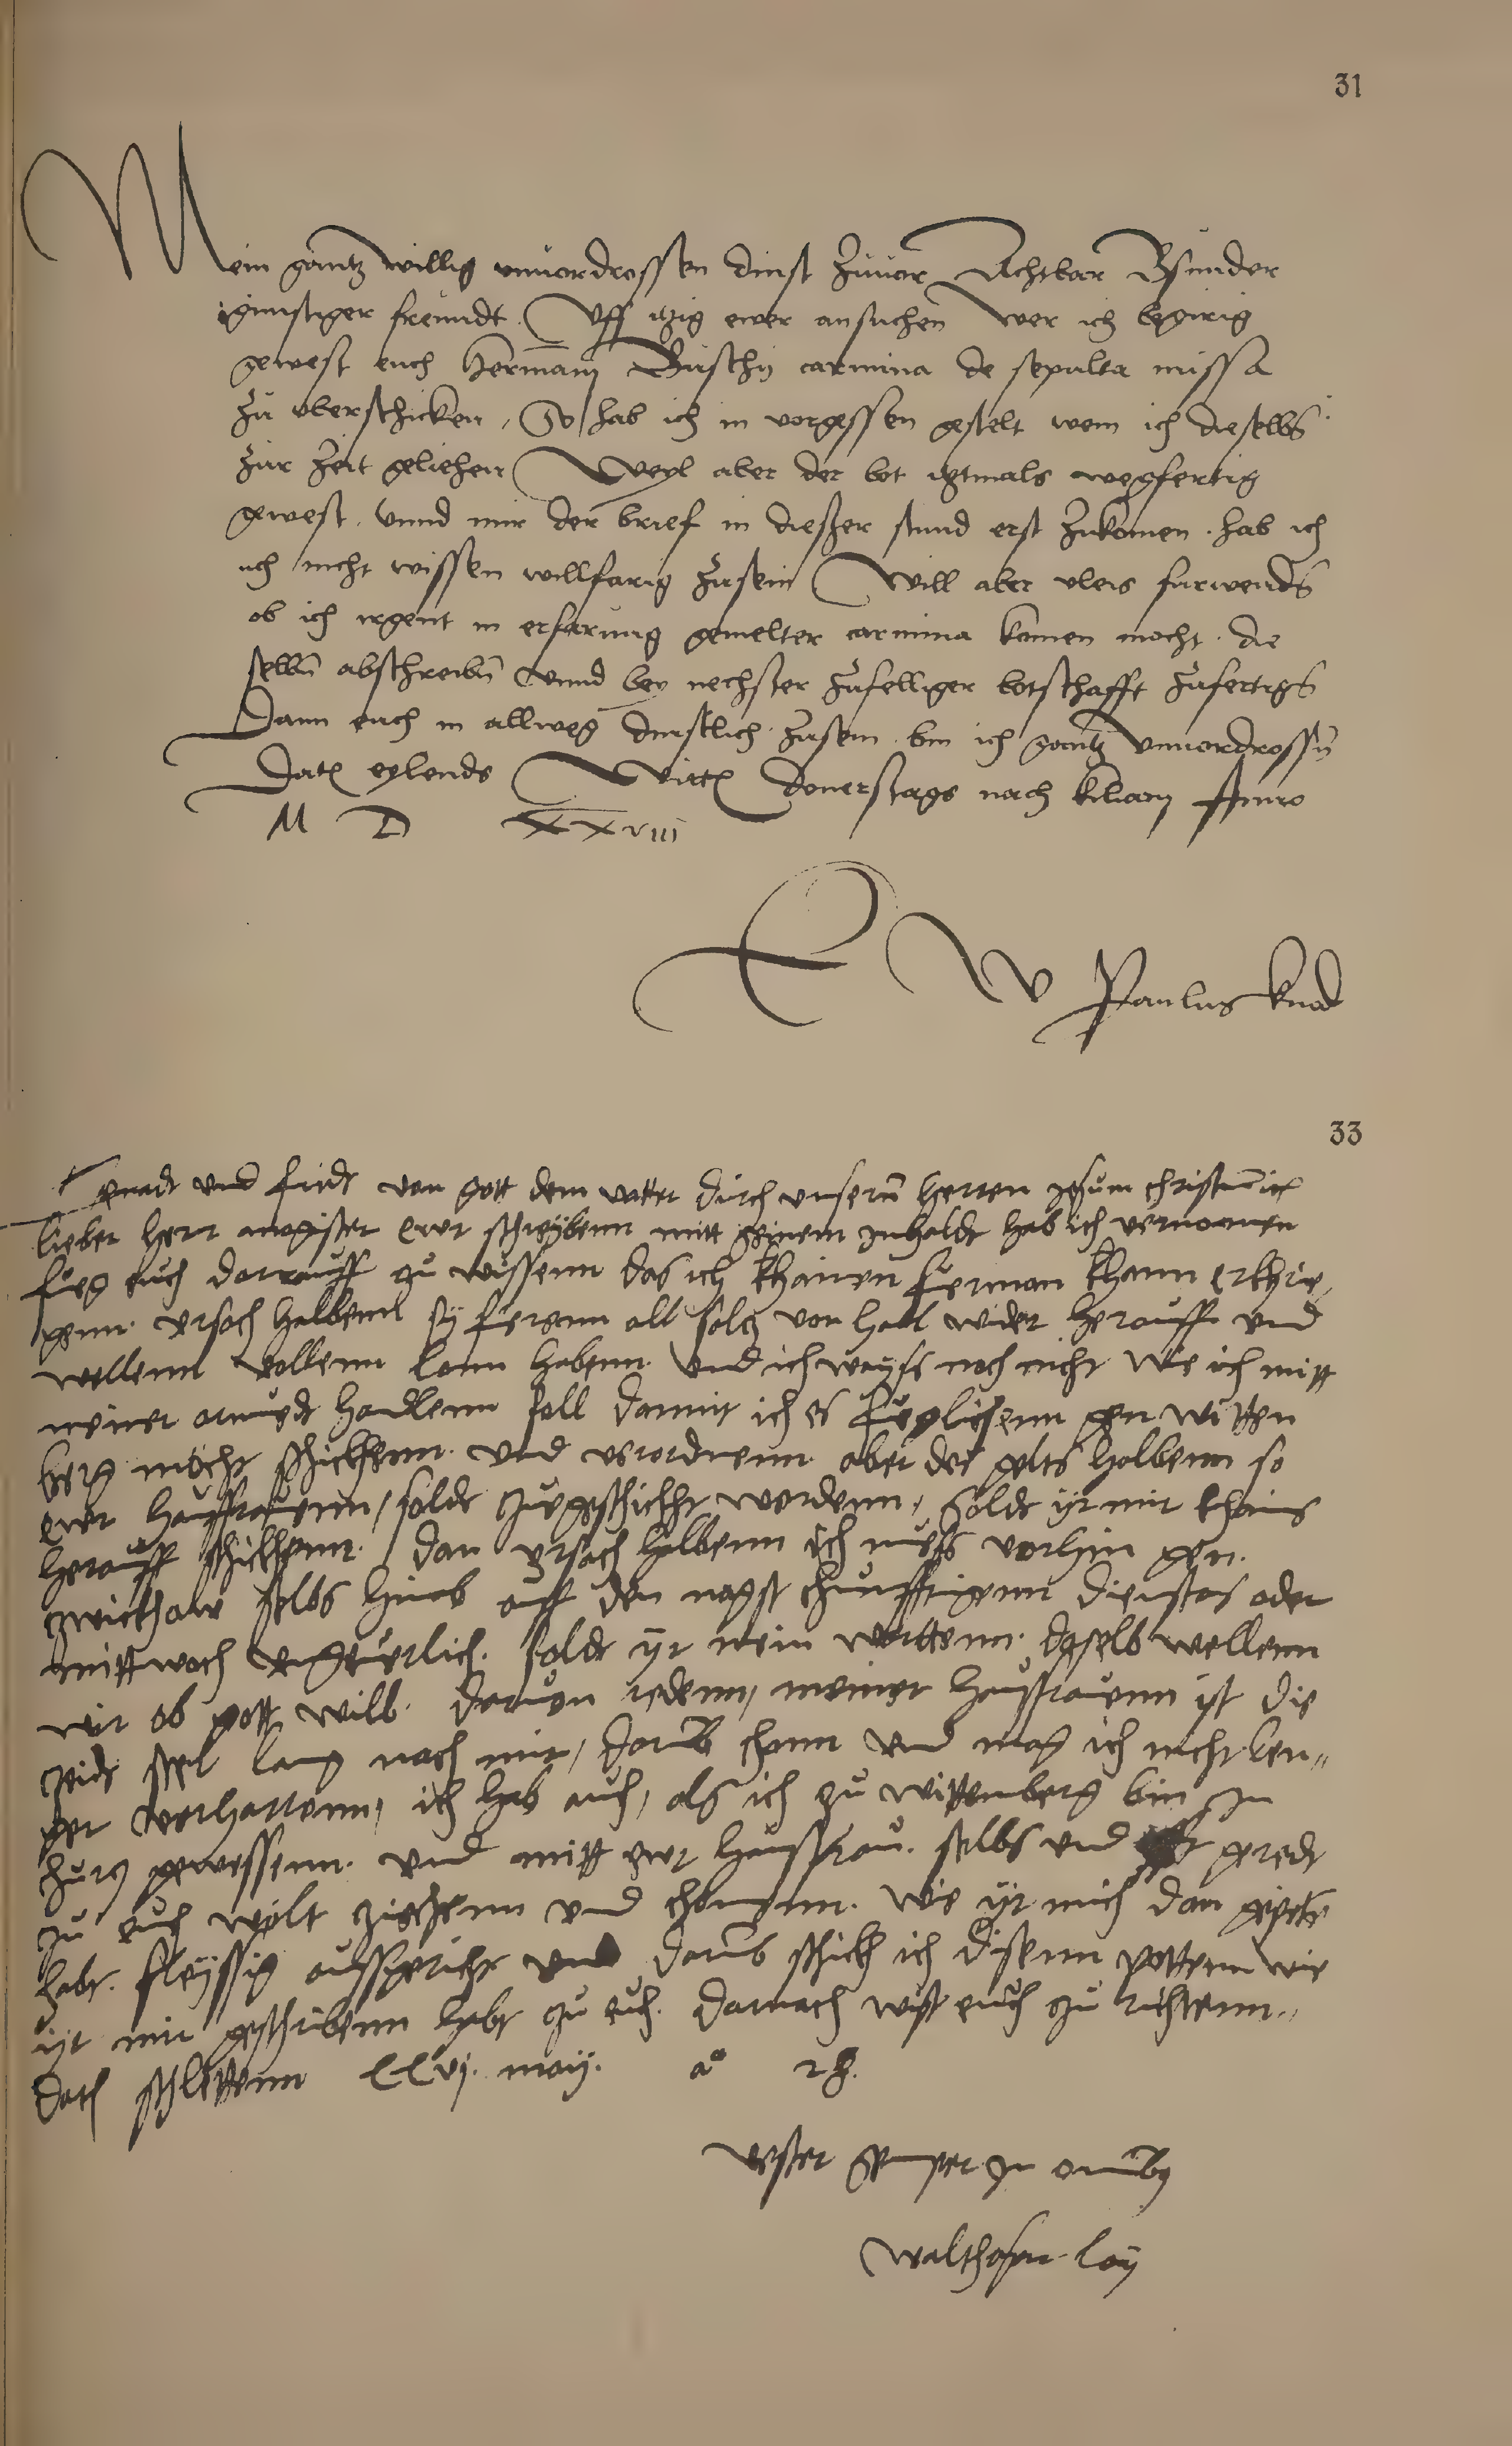 31
Mein gantz willig unuordrossen dinst zuuor Achtbar Bsunder
gunstiger freundt. Uff itzig ewer ansuchen wer ich begirig
gewest euch Hermanj Buschij carmina de sepulta missa
zu uberschicken, So hab ich in vorgessen gestelt wem ich dieselbs
zur zeit geliehen Weyl aber der bot itztmals wegfertig
gewest. Unnd mir der brief in dieszer stund erst zukomen. hab ich
uch nicht wissen willfarig zusein Will aber vleis furwends
ob ich irgent in erfarung gemelter carmina komen mocht. die
selbn abschreibn Unnd bey nechster zufelliger botschafft zufertigs
Dann euch in allweg dinstlich zusein bin ich gantz Unuordrossn
Dat eylends Witt Donerstags nach kiliani Anno
M D XXviii
E W Paulus knod
33
genadt und fridt von gott dem vatter durch unsern herren jhesum christum
lieber herr magister ewr schreybenn mitt seinem innhaldt hab ich vernomen
fueg euch darrauff zu wissenn das ich khainen fuerman khann erkhrie,
genn. ursach halbenn sy fuerenn all saltz von hall wider herauff und
wellenn vollenn lonn habenn. Und ich wayss noch nicht wie ich mitt
meiner armuedt handlenn soll damit ich es fueglichenn gen witten
berg möcht schickhenn. und verordnenn. aber des gelts halbenn so
ewr hausfrauenn, soldt zuegeschickht werdenn, soldt yr mir khains
herauff schickhenn. dan ursach halbenn ich muess vorhin gen.
zwickhaw selbs hinab auff den nagst chunfftigenn dienstag oder
mittwoch ungeuerlich. soldt yr mein warttenn. daselb wellenn
wir ob gott will. daruon redenn, meiner hausfrauenn ist die
zeidt seer lang nach mir, darumb chann und mag ich nicht len,,
ger verharrenn, ich hab auch, als ich zu wittenberg bin in
churtz gewessenn. und mitt ewr hausfrau. selbs und geredt
zu euch wolt ziechenn und chomenn. wie yr mich dan gepetn
habt. fleyssig aussgericht und darumb schickh ich disenn pottenn wie
yr mir geschribenn habt zu euch. darnach wist euch zu richtenn.,
Dat schlettenn xxvj. maij. a° 28.
vester semper in omnibus
Walthasar loy